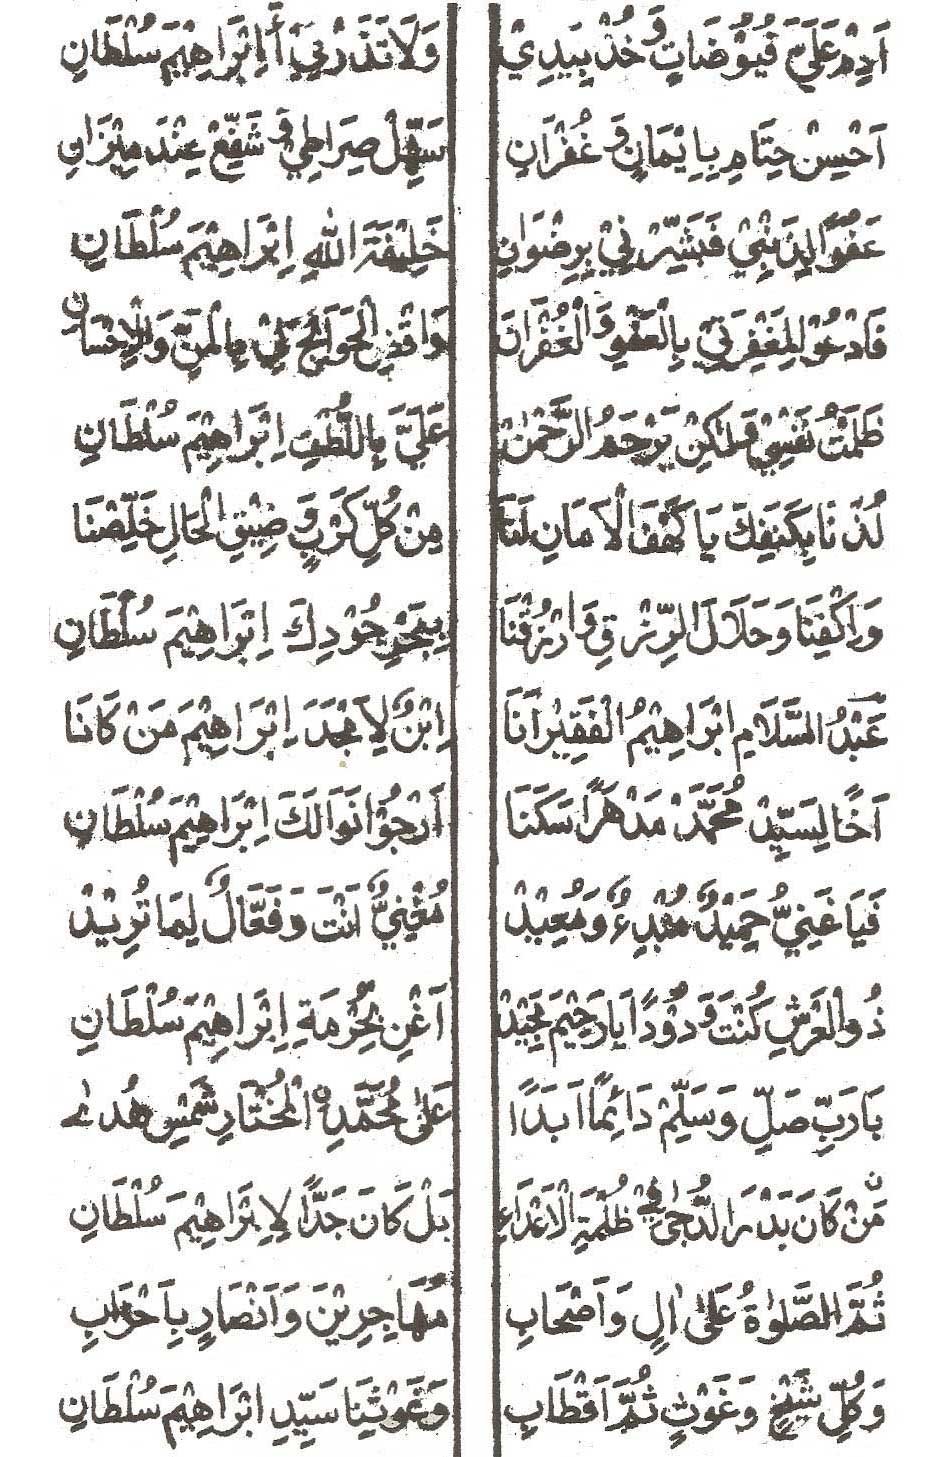 اَدِمْ عَلَيَّ فُيُوْضَاتٍ وَّ خُذْ بِيَدِيْ وَلَا تَذَرْنِيْ أَيَا اِبْرَاهِيْمَ سُلْطَانِ
اَحْسِنْ خِتَامِ بِاِيْمَانٍ وَّ غُفْرَانِ سَهِّلْ صِرَاطِيْ وَ شَفِّعْ عِنْدَ مِيْزَانِ
عَفْوًا لِذَنْبِيْ فَبَشِّرْنِيْ بِرِضْوَانِ خَلِيْفَةَ اللهِ اِبْرَاهِيْمَ سُلْطَانِ
فَادْعُوْ لِمَغْفِرَتِيْ بِالْعَفْوِ وَ الْغُفْرَانَ وَاقْضِ الْحَوَائِجَ لِيْ بِالْمَنِّ وَالْاِحْسَانِ
ظَلَمْتُ نَفْسِيْ وَلٰكِنْ يَرْحَمُ الرَّحْمٰنُ عَلَيَّ بِاللُّطْفِ اِبْرَاهِيْمَ سُلْطَانِ
لُذْنَا بِكَنَفِكَ يَا كَهْفَ الْاَمَانِ لَنَا مِنْ كُلِّ كَرْبٍ وَّ ضِيْقِ الْحَالِ خَلِّصْنَا
وَاكْفِنَا وَحَلَالَ الرِّزْقِ وَارْزُقْنَا بِبَحْرِ جُوْدِكَ اِبْرَاهِيْمَ سُلْطَانِ
عَبْدُ السَّلَامِ ابْرَاهِيْمُ الْفَقِيْرَ اَنَا اِبْنٌ لِاَمْجَدَ اِبْرَاهِيْمَ مَنْ كَانَا
اَخًا لِسَيِّدْ مُحَمَّدْ مَدْهَرًا سَكَنَا اَرْجُوْا نَوَالَكَ اِبْرَاهِيْمَ سُلْطَانِ
فَيَا غَنِيُّ حَمِيْدٌ مُبْدِءٌ وَمُعِيْدْ مُغْنِيٌّ اَنْتَ وَفَعَّالٌ لِمَا تُرِيْدْ
ذُو الْعَرْشِ كُنْتَ وَدُوْدًا يَا رَحِيْمَ مَجِيْدْ اَغْنِ بِحُرْمَةِ اِبْرَاهِيْمَ سُلْطَانِ
يَا رَبِّ صَلِّ وَسَلِّمْ دَائِمًا اَبَدًا عَلٰى مُحَمَّدِنِ الْمُخْتَارِ شَمْسِ هُدٰى
مَنْ كَانَ بَدْرَ الدُّجٰى فِيْ ظُلْمَةِ الْاَعْدَاءِ بَلْ كَانَ جَدًّا لِاِبْرَاهِيْمَ سُلْطَانِ
ثُمَّ الصَّلٰوةُ عَلٰى اٰلٍ وَاَصْحَابِ مُهَاجِرِيْنَ وَاَنْصَارٍ بِاَحْزَابِ
وَكُلِّ شَيْخٍ وَغَوْثٍ ثُمَّ اَقْطَابِ وَغَوْثِنَا سَيِّدِ ابْرَاهِيْمَ سُلْطَانِ